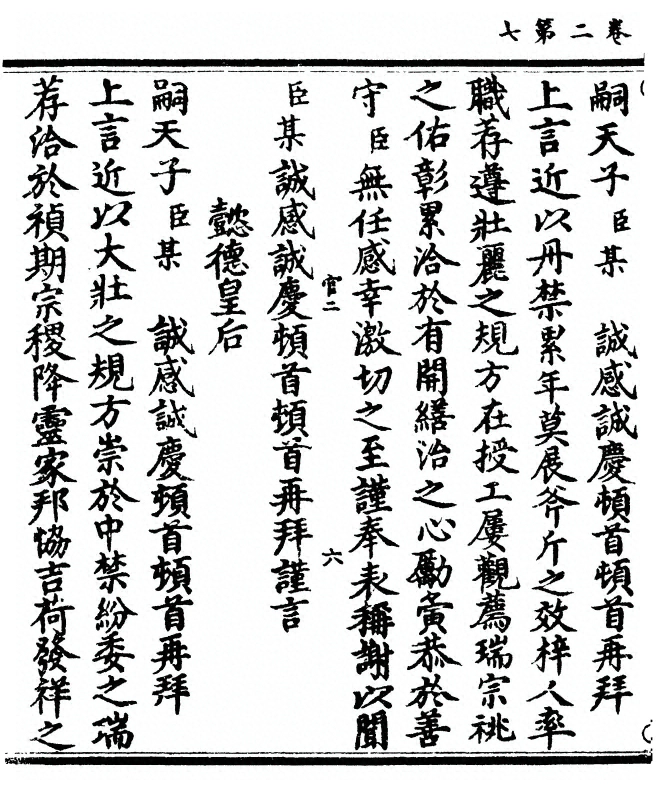 卷二第七
嗣天子臣某　誠感誠慶頓首頓首再拜
上言近以丹禁累年莫展斧斤之效梓人率
職荐遵壯麗之規方在授工屢觀薦瑞宗祧
之佑彰累洽於有開繕治之心勵寅恭於善
守臣無任感幸激切之至謹奉表稱謝以聞
官二
六
臣某誠感誠慶頓首頓首再拜謹言
懿德皇后
嗣天子臣某　誠感誠慶頓首頓首再拜
上言近以大壯之規方崇於中禁紛委之瑞
荐洽於禎期宗稷降靈家邦協吉荷發祥之